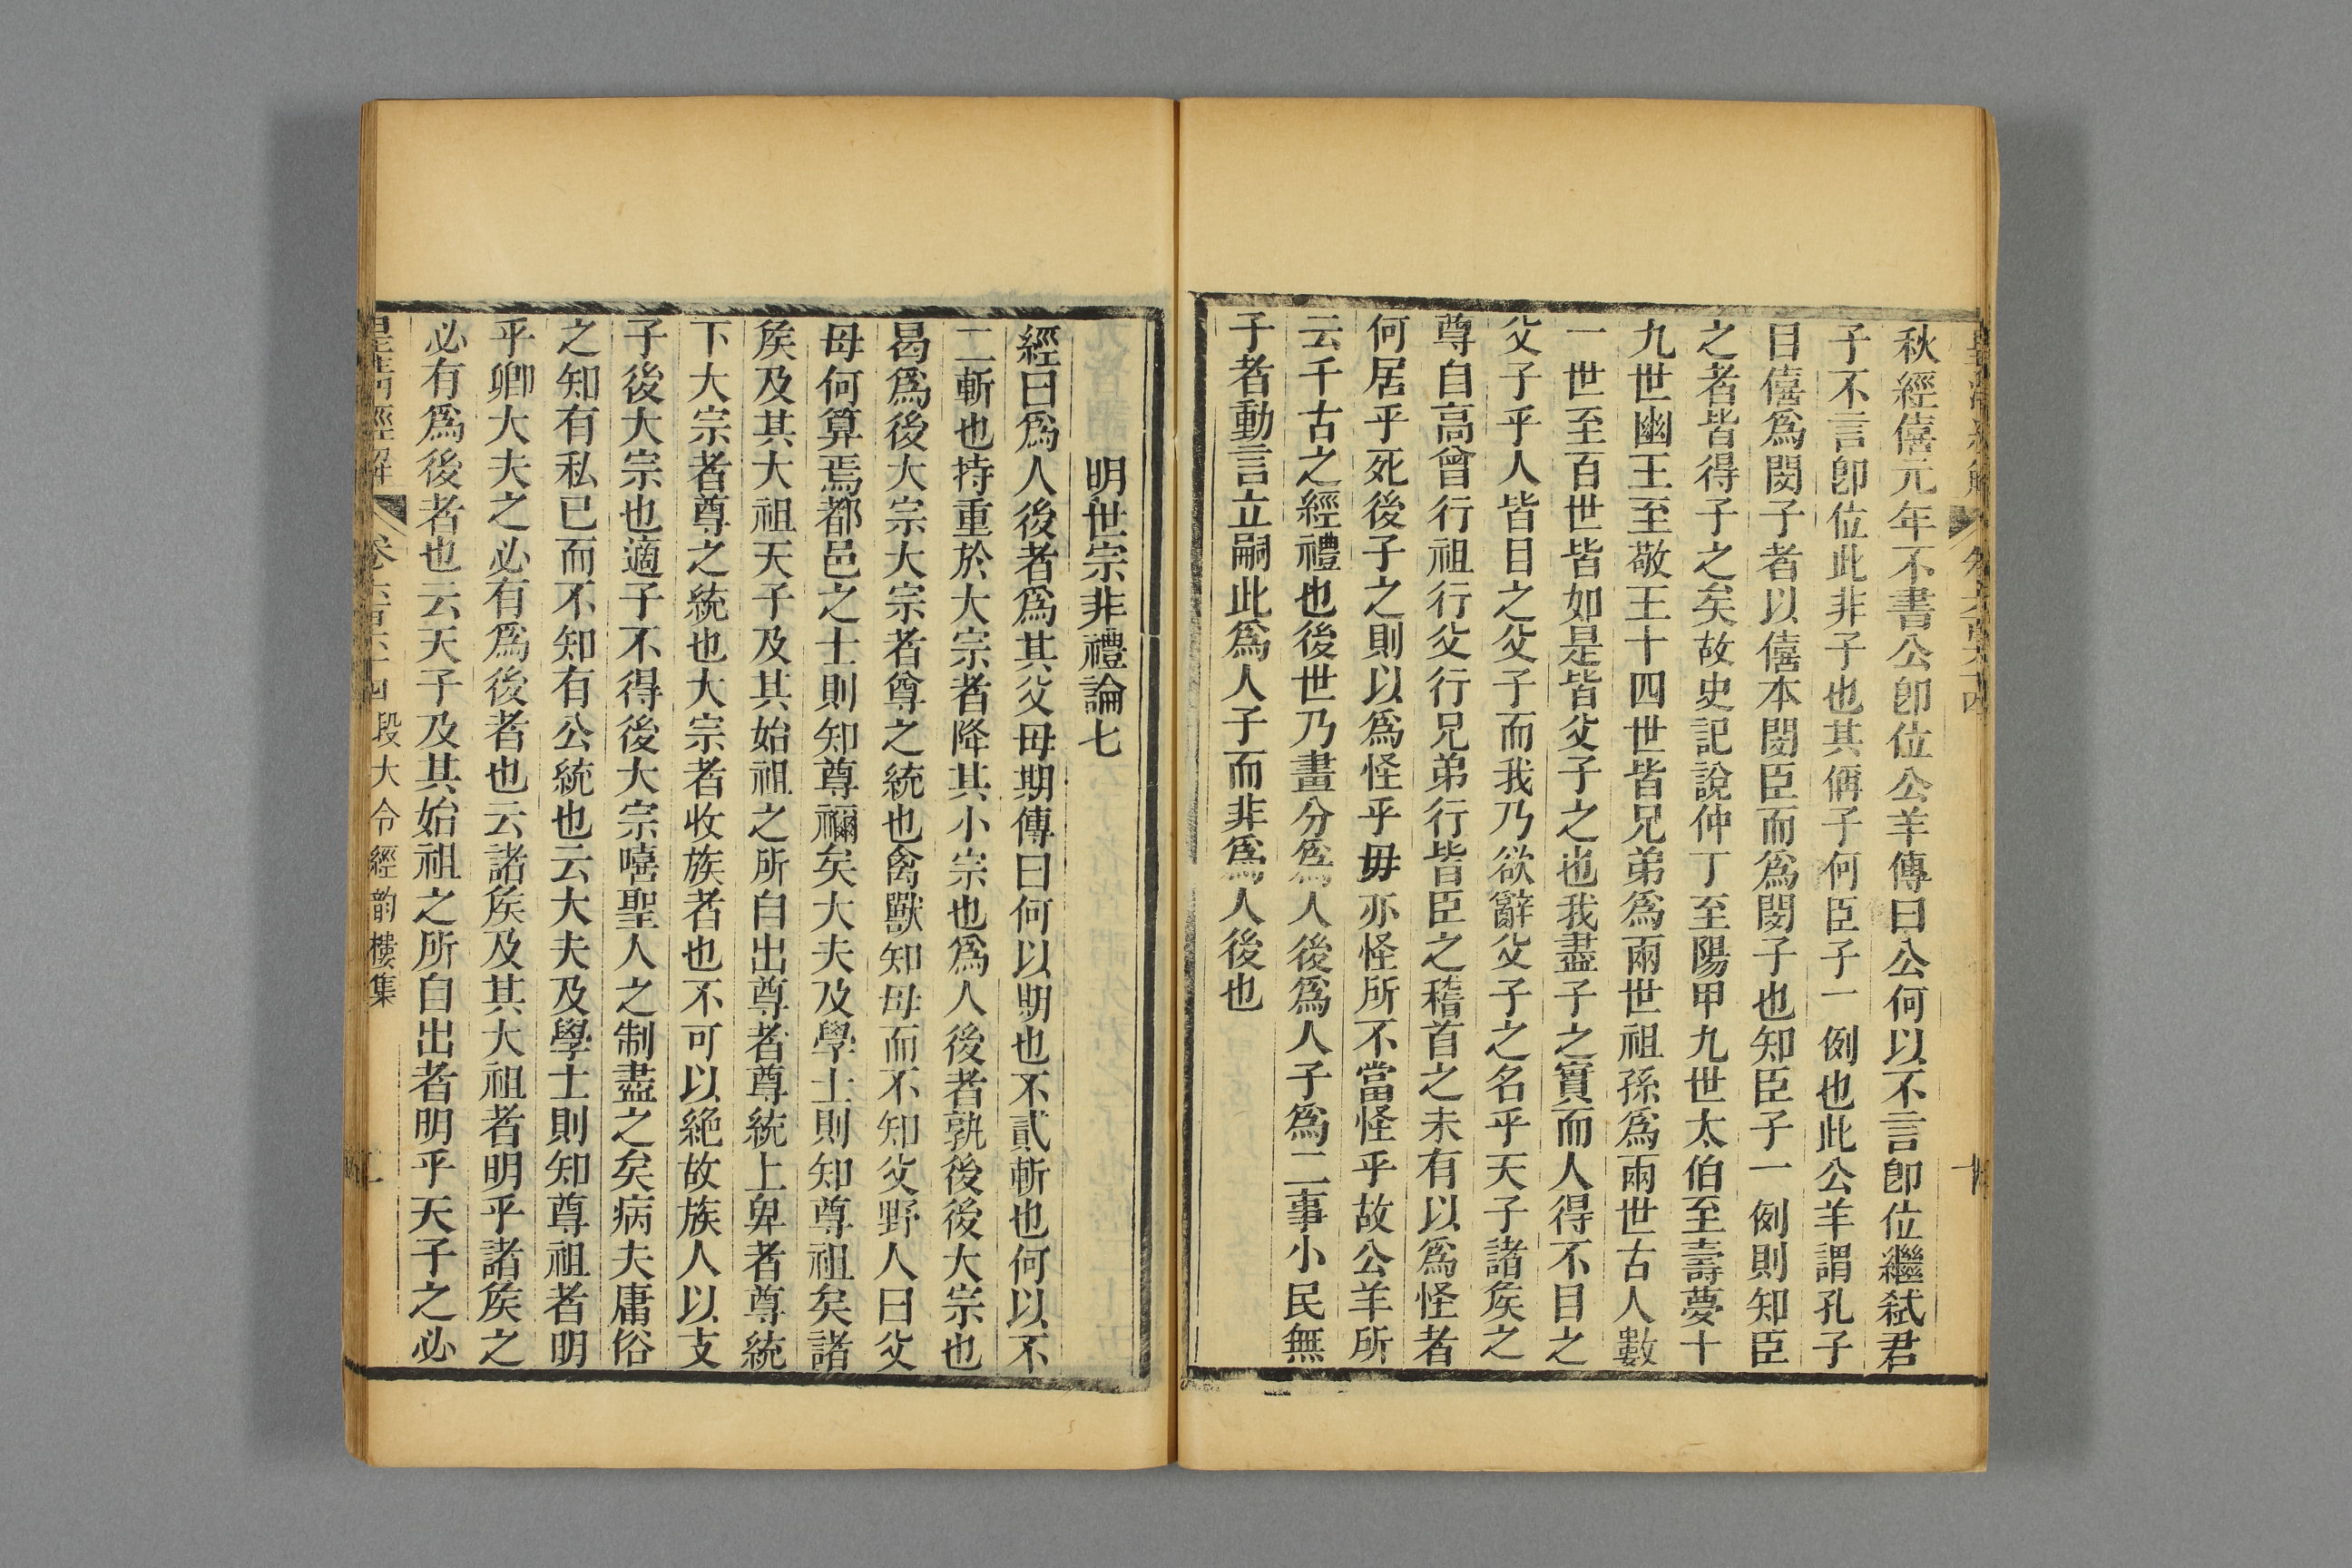 秋經僖元年不書公卽位公羊傳曰公何以不言卽位繼弑君
子不言卽位此非子也其偁子何臣子一例也此公羊謂孔子
目僖爲閔子者以僖本閔臣而爲閔子也知臣子一例則知臣
之者皆得子之矣故史記說仲丁至陽甲九世太伯至壽夢十
九世幽王至敬王十四世皆兄弟爲兩世祖孫爲兩世古人數
一世至百世皆如是皆父子之也我盡子之實而人得不目之
父子乎人皆目之父子而我乃欲辭父子之名乎天子諸矦之
尊自高曾行祖行父行兄弟行皆臣之稽首之未有以爲怪者
何居乎死後子之則以爲怪乎毋亦怪所不當怪乎故公羊所
云千古之經禮也後世乃畫分爲人後爲人子爲二事小民無
子者動言立嗣此爲人子而非爲人後也
明世宗非禮論七
經曰爲人後者爲其父母期傳曰何以期也不貳斬也何以不
二斬也持重於大宗者降其小宗也爲人後者孰後後大宗也
曷爲後大宗大宗者尊之統也禽獸知母而不知父野人曰父
母何算焉都邑之士則知尊禰矣大夫及學士則知尊祖矣諸
矦及其大祖天子及其始祖之所自出尊者尊統上卑者尊統
下大宗者尊之統也大宗者收族者也不可以絶故族人以支
子後大宗也適子不得後大宗嘻聖人之制盡之矣病夫庸俗
之知有私已而不知有公統也云大夫及學士則知尊祖者明
乎卿大夫之必有爲後者也云諸矦及其大祖者明乎諸矦之
必有爲後者也云天子及其始祖之所自出者明乎天子之必
皇清經解 卷六百六十四 段大令經韵樓集